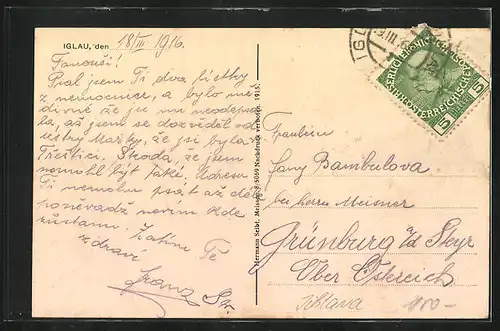 IGLAU, den 18/III 1916.
Fanouši!
Psal jsem Ti dva lístky
z nemocnice, a bylo mě
divné že jsi mi neodepsa-
la, až jsem se dozvěděl od
sestry Mařky, že jsi byla
Třeštici. Škoda, že jsem
nemohl být také. Adresu
Ti nemohu psát až dél
poněvadž nevím kde
zůstanu. Zatím Tě
zdraví
Franz
Hermann Seibt, Meissen 8/5069 Nachdruck verboten. 1915.
IGL
5 5
Fraulein
Fany Bambulova
bei Herrn Meisner
Grünburg a/d Steyr
Ober Östereich
Jihlava